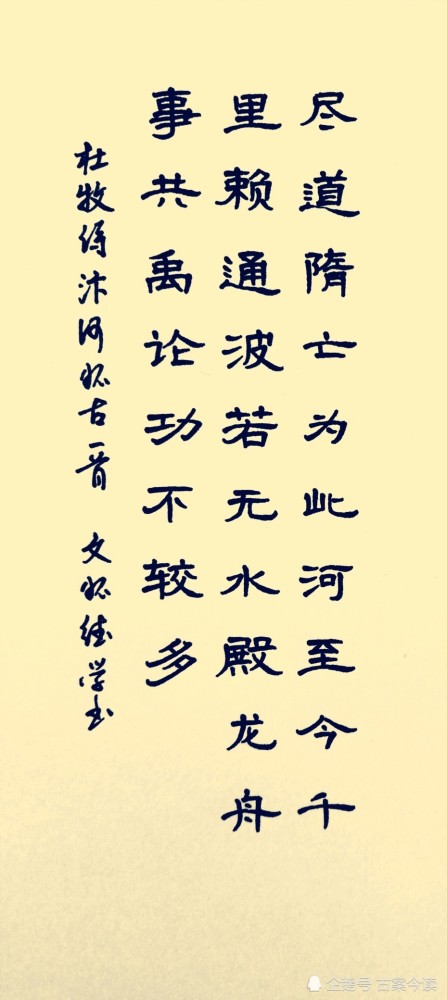 尽道隋亡为此河至今千
里赖通波若无水殿龙舟
事共禹论功不较多
杜牧诗汴河怀古一首 文怀 学书
企鹅号 古案今读